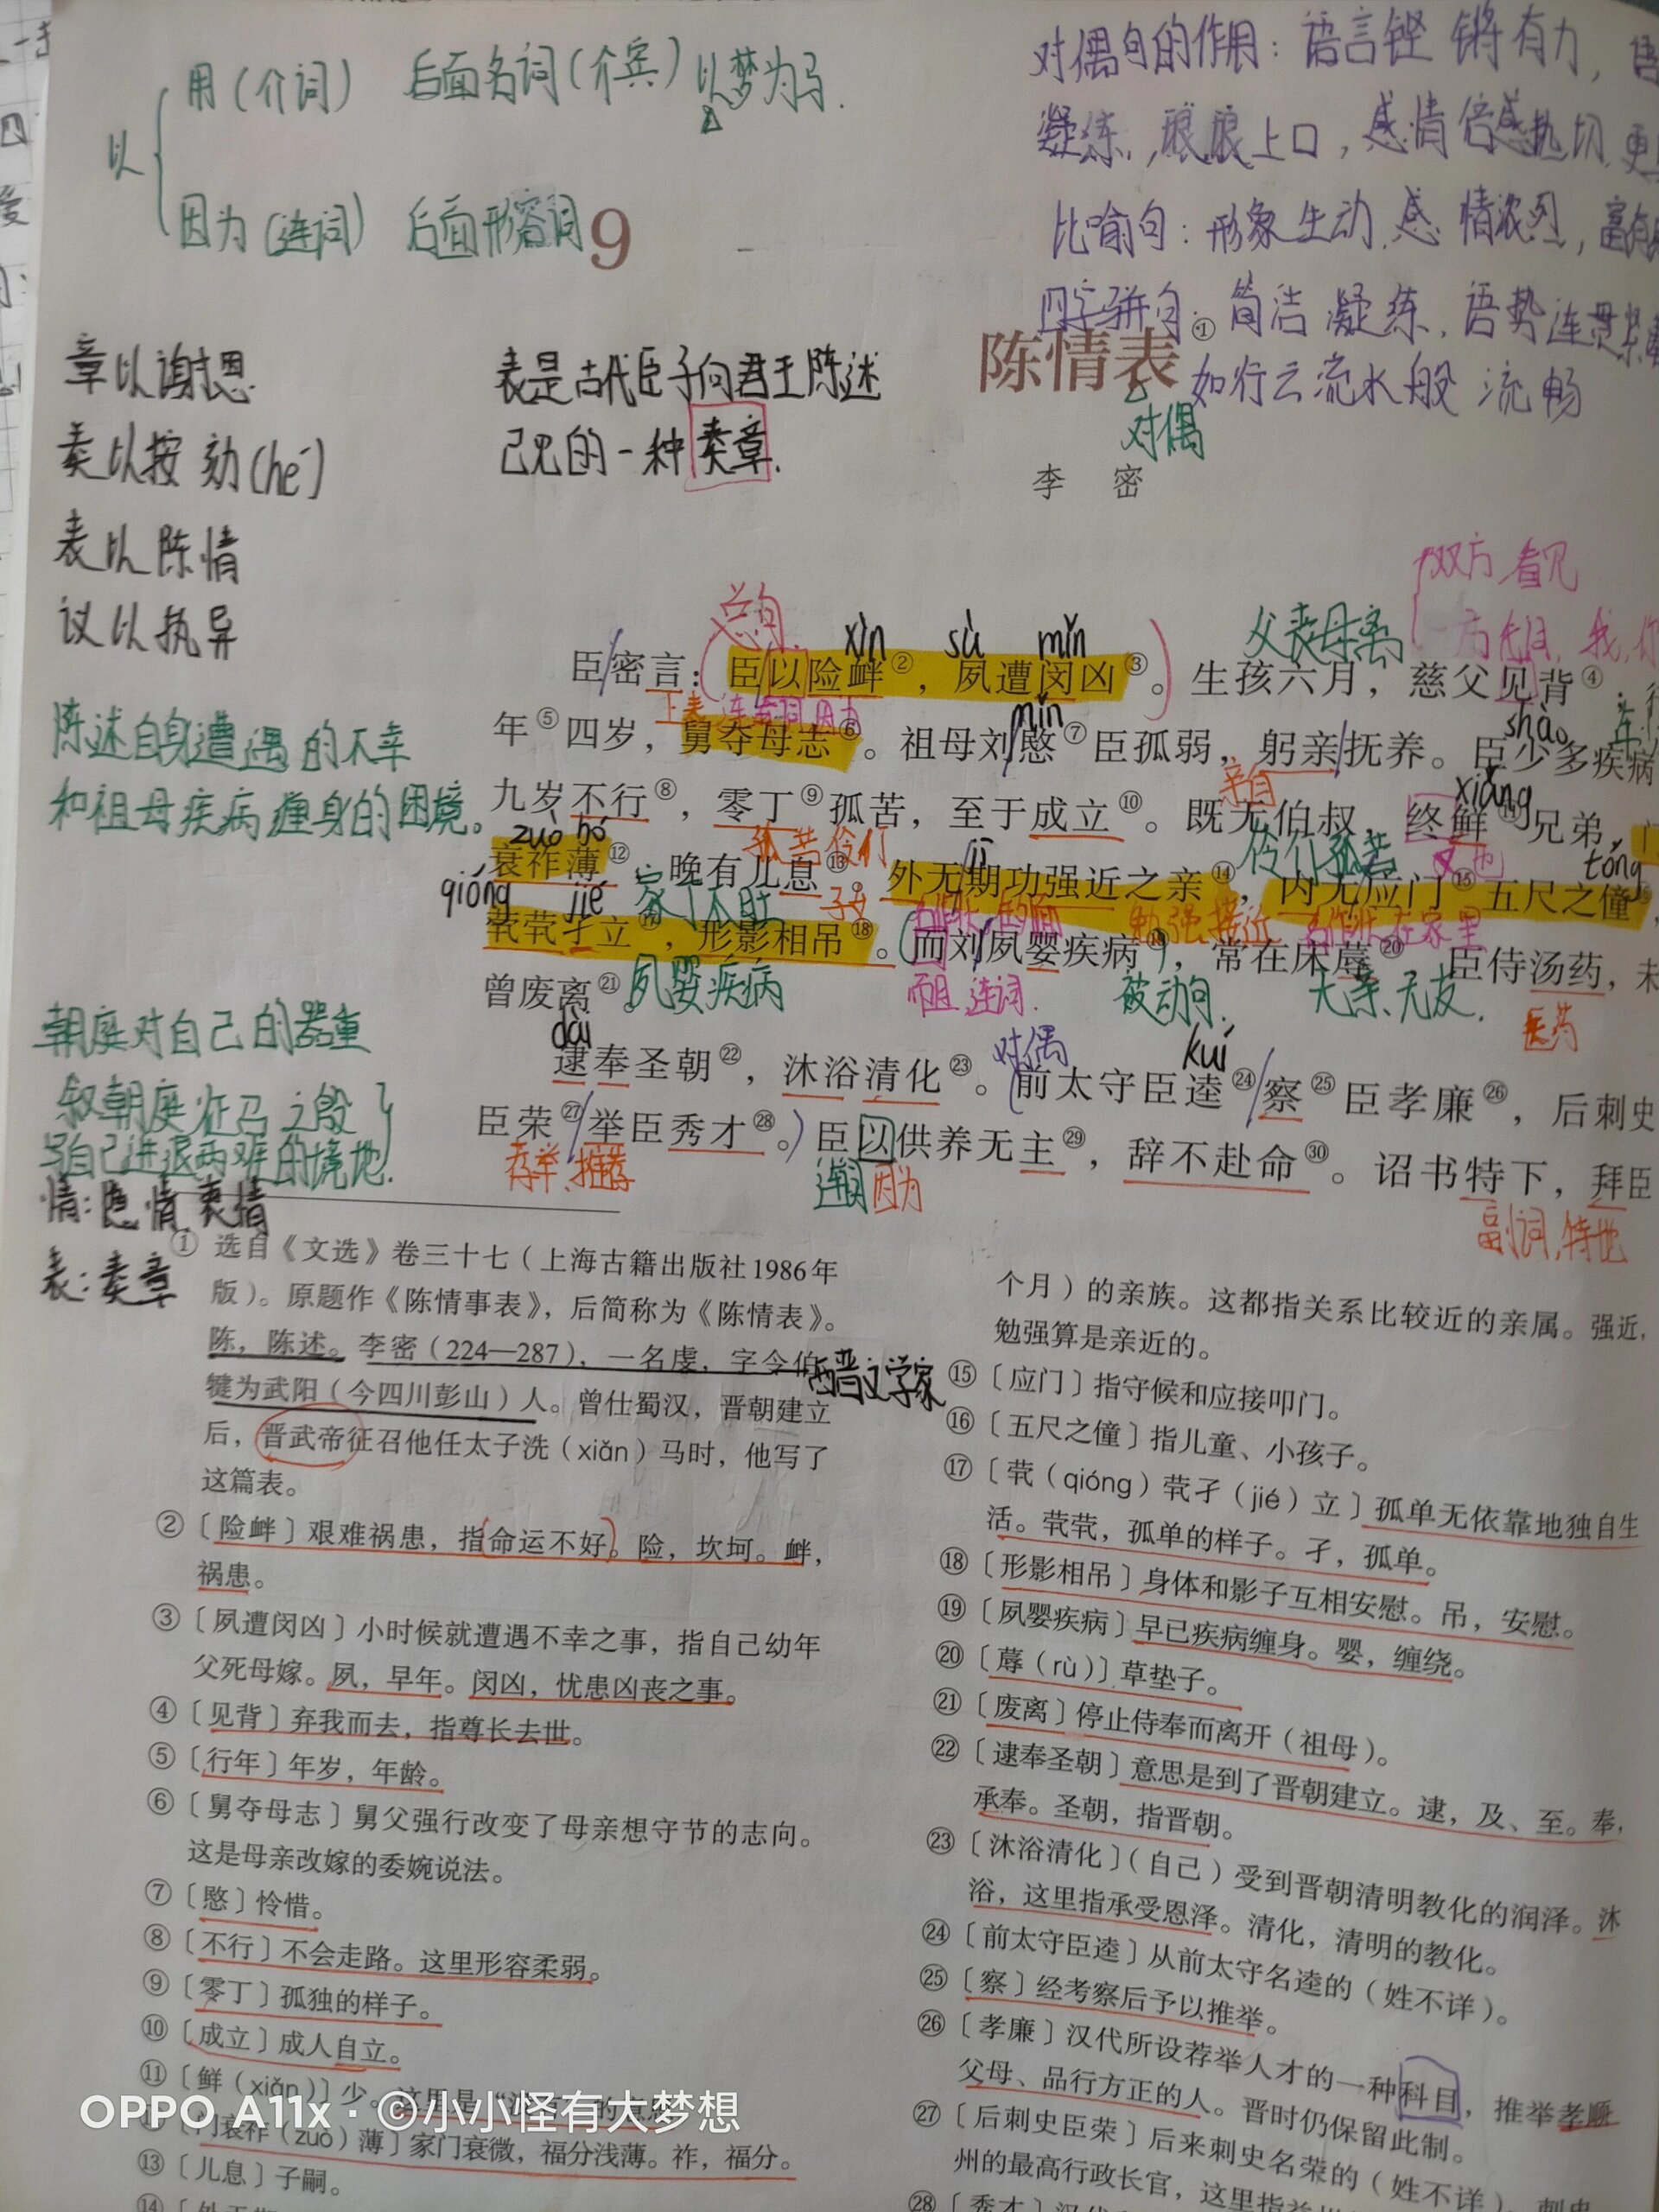 用（介词） 后面名词（介宾）以梦为马.
以
因为（连词） 后面形容词
9
对偶句的作用：语言铿锵有力，语
凝练，琅琅上口，感情倍感热切，更
比喻句：形象生动，感情浓烈，富有
四字骈句：简洁凝练，语势连贯紧
如行云流水般流畅
陈情表①
对偶
李 密
章以谢恩
奏以按劾(hé)
表以陈情
议以执异
表是古代臣子向君王陈述
己见的一种奏章.
陈述自身遭遇的不幸
和祖母疾病缠身的困境。
朝廷对自己的器重
叙朝廷征召之殷
写自己进退两难的境地.
情：隐情 衷情
表：奏章
双方 看见
父丧母离
总句
xìn sù mǐn
臣密言：臣以险衅②，夙遭闵凶③。生孩六月，慈父见背④
上表 连词 因为
mǐn shào
年⑤四岁，舅夺母志⑥。祖母刘愍⑦臣孤弱，躬亲抚养。臣少多疾病
亲自 xiǎng
九岁不行⑧，零丁⑨孤苦，至于成立⑩。既无伯叔，终鲜⑪兄弟，门
zuò bó 孤苦伶仃 jī 伶仃孤苦 又也 tóng
衰祚薄⑫，晚有儿息⑬。外无期功强近之亲⑭，内无应门⑮五尺之僮
qióng jié 家门不旺 子女 勉强接近 名作状 在家里
茕茕孑立⑰，形影相吊⑱。而刘夙婴疾病⑲，常在床蓐⑳，臣侍汤药，未
曾废离㉑。
夙婴疾病 而且 连词. 被动句. 无亲无友. 医药
dài 对偶 kuí
逮奉圣朝㉒，沐浴清化㉓。前太守臣逵㉔察㉕臣孝廉㉖，后刺史
臣荣㉗举臣秀才㉘。臣以供养无主㉙，辞不赴命㉚。诏书特下，拜臣
荐举、推荐 连词 因为 副词，特地
① 选自《文选》卷三十七（上海古籍出版社1986年
版）。原题作《陈情事表》，后简称为《陈情表》。
陈，陈述。李密（224—287），一名虔，字令伯
西晋文学家
犍为武阳（今四川彭山）人。曾仕蜀汉，晋朝建立
后，晋武帝征召他任太子洗（xiǎn）马时，他写了
这篇表。
②〔险衅〕艰难祸患，指命运不好。险，坎坷。衅，
祸患。
③〔夙遭闵凶〕小时候就遭遇不幸之事，指自己幼年
父死母嫁。夙，早年。闵凶，忧患凶丧之事。
④〔见背〕弃我而去，指尊长去世。
⑤〔行年〕年岁，年龄。
⑥〔舅夺母志〕舅父强行改变了母亲想守节的志向。
这是母亲改嫁的委婉说法。
⑦〔愍〕怜惜。
⑧〔不行〕不会走路。这里形容柔弱。
⑨〔零丁〕孤独的样子。
⑩〔成立〕成人自立。
⑪〔鲜（xiǎn）〕少。这里是
〔门衰祚（zuò）薄〕家门衰微，福分浅薄。祚，福分。
⑬〔儿息〕子嗣。
⑭
个月）的亲族。这都指关系比较近的亲属。强近，
勉强算是亲近的。
⑮〔应门〕指守候和应接叩门。
⑯〔五尺之僮〕指儿童、小孩子。
⑰〔茕（qióng）茕孑（jié）立〕孤单无依靠地独自生
活。茕茕，孤单的样子。孑，孤单。
⑱〔形影相吊〕身体和影子互相安慰。吊，安慰。
⑲〔夙婴疾病〕早已疾病缠身。婴，缠绕。
⑳〔蓐（rù）〕草垫子。
㉑〔废离〕停止侍奉而离开（祖母）。
㉒〔逮奉圣朝〕意思是到了晋朝建立。逮，及、至。奉，
承奉。圣朝，指晋朝。
㉓〔沐浴清化〕（自己）受到晋朝清明教化的润泽。沐
浴，这里指承受恩泽。清化，清明的教化。
㉔〔前太守臣逵〕从前太守名逵的（姓不详）。
㉕〔察〕经考察后予以推举。
㉖〔孝廉〕汉代所设荐举人才的一种科目，推举孝顺
父母、品行方正的人。晋时仍保留此制。
㉗〔后刺史臣荣〕后来刺史名荣的（姓不详）。刺史
州的最高行政长官，这里指益州
㉘〔秀才〕汉代
OPPO A11x · ©小小怪有大梦想